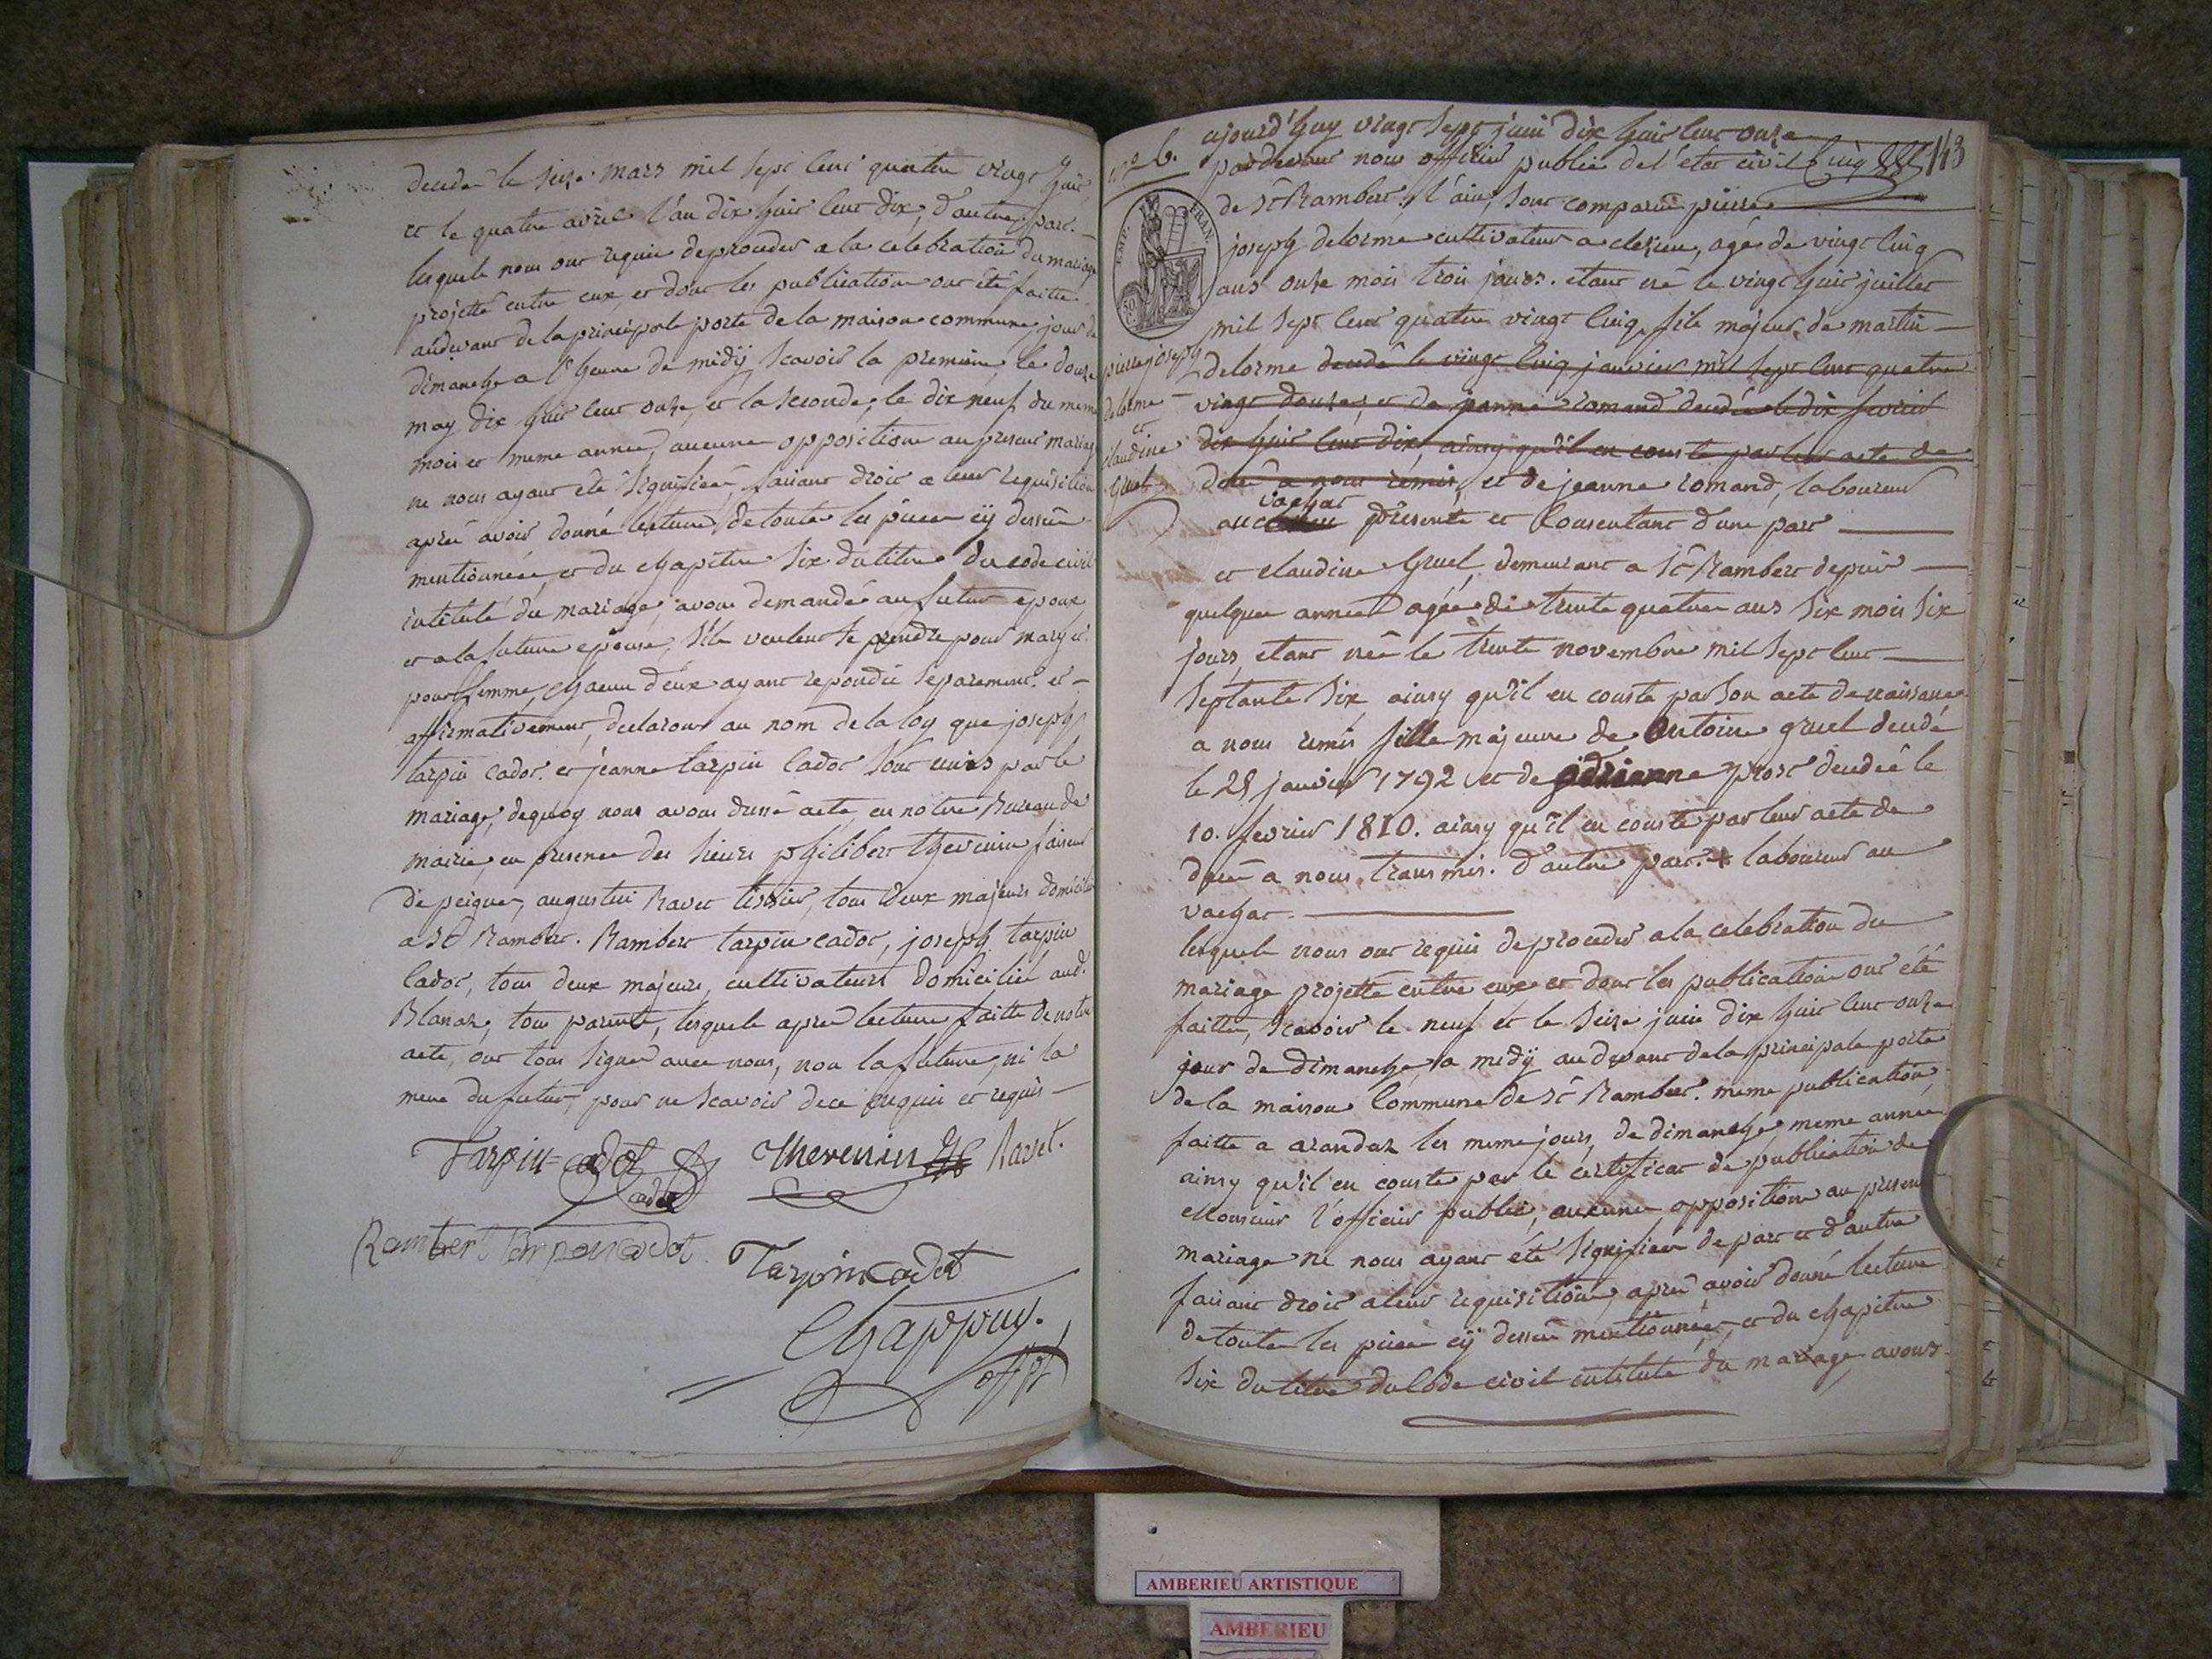 decedé le seize mars mil sept cent quatre vingt huit
et le quatre avril l'an dix huit cent dix, d'autre part.
lesquels nous ont requis de proceder a la celebration du mariage
projetté entre eux, et dont les publications ont été faittes
audevant de la principale porte de la maison commune, jour de
dimanche a l'heure de midÿ, scavoir la premiere, le douze
may dix huit cent onze, et la seconde, le dix neuf du meme
mois et meme année, aucunne opposition au present mariage
ne nous ayant été signifiée, faisant droit a leur requisition
apres avoir donné lecture de toutes les pieces cÿ dessus
mentionnées, et du chapitre six du titre du code civil
intitulé du mariage, avons demandé au futur epoux
et a la future epouse, s'ils veulent se prendre pour mary et
pour femme, chacun d'eux ayant repondu separement et
affirmativement, declarons au nom de la loy que joseph
tarpin cadot et jeanne tarpin cadot sont unis par le
mariage, dequoy nous avons dressé acte, en notre Bureau de
mairie, en presence des sieurs philibert thevenin faiseur
de peignes, augustin Ravet tissier, tous deux majeurs domiciliés
a St Rambert. Rambert tarpin cadot, joseph tarpin
cadot, tous deux majeurs, cultivateurs domiciliés aud.
Blanaz, tous parents, lesquels apres lecture faitte de notre
acte, ont tous signé avec nous, non la future, ni la
mere du futur, pour ne scavoir de ce enquis et requis
Tarpin=cadot Thevenin Ravet.
cadot
Rambert Tarpin cadot
Tarpin cadot
Chappuy.
off pt
n° 6.
ajourd'huy vingt sept juin dix huit cent onze
pardevant nous officier public de l'état civil
113
de St Rambert, l'ain, sont comparu pierre
EMP. FRAN.
50
joseph delorme cultivateur a clezieu, agé de vingt cinq
ans onze mois trois jours. etant né le vingt huit juillet
mil sept cent quatre vingt cinq, fils majeur de martin
pierre joseph
delorme
et
claudine
gruel
delorme decedé le vingt cinq janvier mil sept cent quatre
vingt douze, et de jeanne romand decedée le dix fevrier
dix huit cent dix, ainsy qu'il en conste par leur acte de
decé a nous rémis, et de jeanne romand, laboureur
vachat
au présents et consentant d'une part
et claudine gruel, demeurant a St Rambert depuis
quelques années agée de trente quatre ans six mois six
jours, etant née le trente novembre mil sept cent
septante six, ainsy qu'il en conste par son acte de naissance
a nous remis fille majeure de Antoine gruel decedé
le 28 janvier 1792 et de prost decedée le
10. fevrier 1810. ainsy qu'il en conste par leur acte de
decé a nous transmis. d'autre part. + laboureur au
vachat.
lesquels nous ont requis de proceder a la celebration du
mariage projetté entre eux et dont les publications ont été
faittes, scavoir le neuf et le seize juin dix huit cent onze
jour de dimanche, a midÿ au devant de la principale porte
de la maison commune de St Rambert. meme publication
faitte a arandaz les meme jours, de dimanche meme année
ainsy qu'il en conste par le certificat de publication de
Monsieur l'officier public, aucunne opposition au present
mariage ne nous ayant été signifiée de part et d'autre
faisant droit a leur requisition, apres avoir donné lecture
de toutes les pieces cÿ dessus mentionnées, et du chapitre
six du titre du code civil intitulé du mariage, avons
AMBERIEU ARTISTIQUE
AMBERIEU